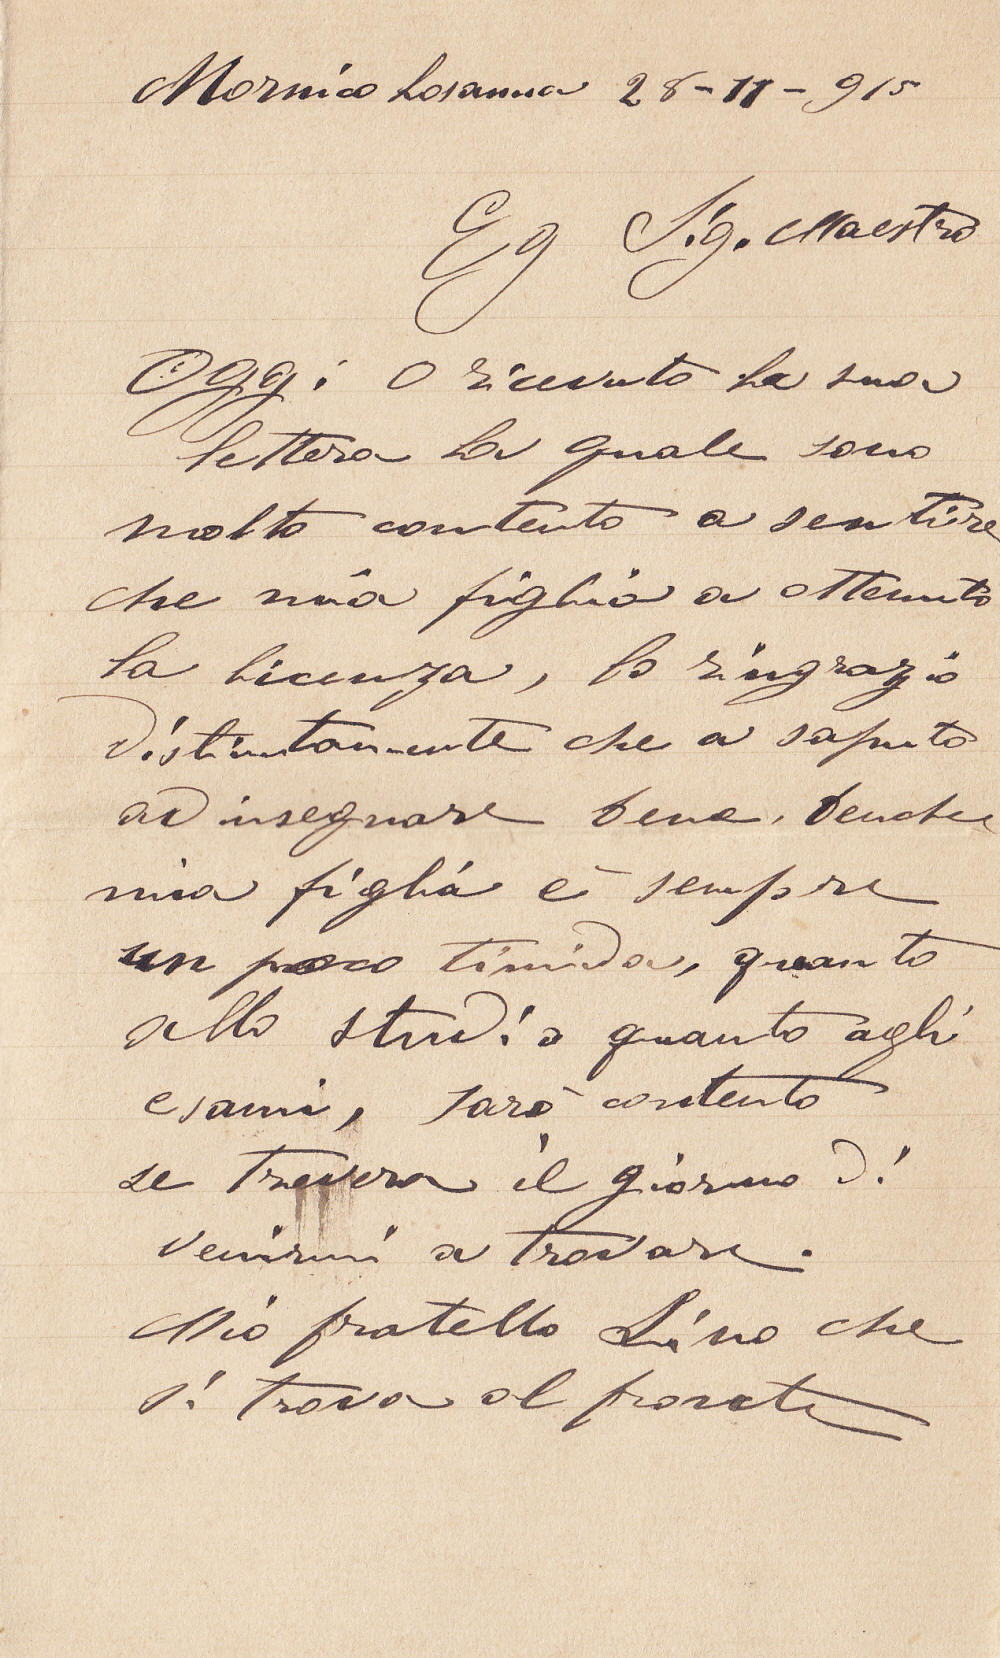 Mornico Losanna 28-11-915
Eg Sig. Maestro
Oggi O ricevuto la sua
lettera la quale sono
molto contento a sentire
che mia figlia a ottenuto
la licenza, lo ringrazio
distintamente che a saputo
ad insegnare bene, benche
mia figlia è sempre
un poco timida, quanto
allo studio quanto agli
esami, sarò contento
se trovera il giorno di
venirmi a trovare.
Mio fratello Lino che
si trova al fronte